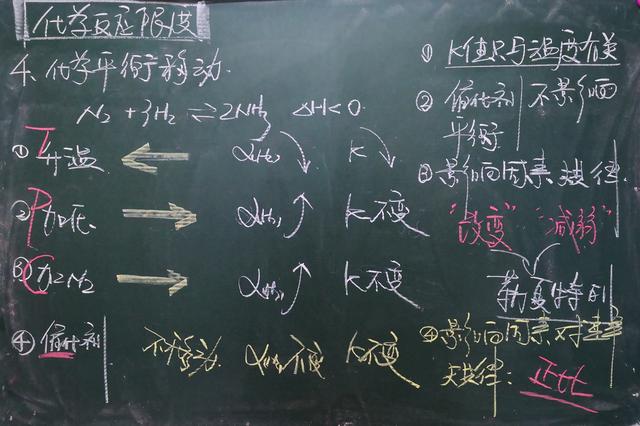 化学反应限度
4. 化学平衡移动.
N₂ + 3H₂ ⇌ 2NH₃ ΔH<0
T
① 升温 ← αH₂ ↓ K ↓
P
② 加压 → αH₂ ↑ K不变
C
③ 加N₂ → αH₂ ↑ K不变
④ 催化剂 不移动 αH₂不变 K不变
① K值只与温度有关
② 催化剂 不影响
平衡
③ 影响因素 规律
"改变" "减弱"
勒夏特列
④ 影响因素对速率
规律: 正比